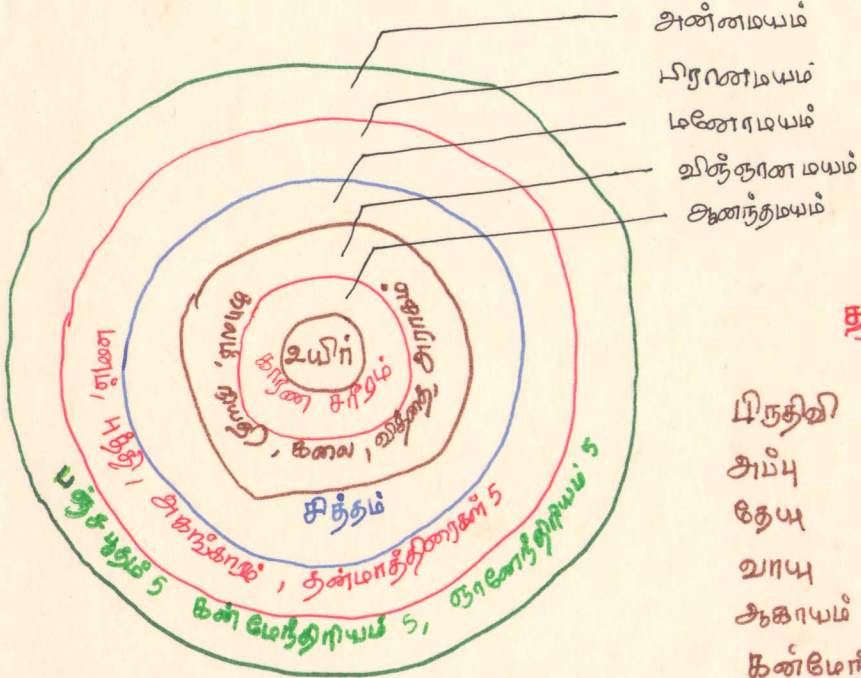 அன்னமயம்
பிராணமயம்
மனோமயம்
விஞ்ஞான மயம்
ஆனந்தமயம்
உயிர்
காரண சரீரம்
காலம், நியதி, கலை, வித்தை, அராகம்
சித்தம்
மனம், புத்தி, அகங்காரம், தன்மாத்திரைகள் 5
பஞ்ச பூதம் 5 கன்மேந்திரியம் 5, ஞானேந்திரியம் 5
பிருதிவி
அப்பு
தேயு
வாயு
ஆகாயம்